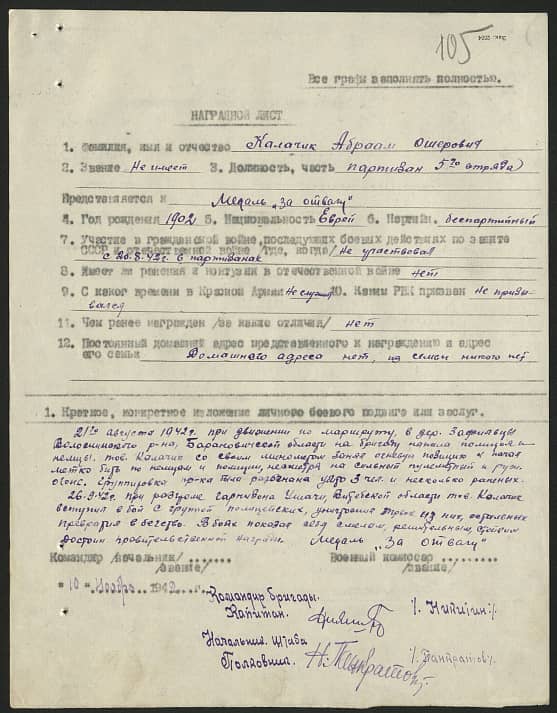 105
Все графы заполнять полностью.
НАГРАДНОЙ ЛИСТ
1. Фамилия, имя и отчество Калачик Абраам Ошерович
2. Звание Не имеет 3. Должность, часть партизан 5го отряда
Представляется к Медаль „За отвагу"
4. Год рождения 1902 5. Национальность Еврей 6. Партийн. беспартийный
7. Участие в гражданской войне, последующих боевых действиях по защите
СССР и отечественной войне /где, когда/ Не участвовал
с 20.8.42г. в партизанах
8. Имеет ли ранения и контузии в отечественной войне нет
9. С какого времени в Красной Армии Не служил 10. Каким РВК призван Не призы-
вался
11. Чем ранее награжден /за какие отличия/ нет
12. Постоянный домашний адрес представленного к награждению и адрес
его семьи Домашнего адреса нет, из семьи никого нет
1. Краткое, конкретное изложение личного боевого подвига или заслуг.
21го августа 1942г. при движении по маршруту, в дер.
р-на, Барановической области на бригаду напала полиция и
немцы. тов. Калачик со своим занял огневую позицию и начал
метко бить по немцам и полиции, несмотря на сильный пулеметный и руж.
огонь. Группировка пр-ка была разогнана убито 3 чел. и несколько раненых.
26.9.42г. при разгроме гарнизона Ушачи Витебской области тов. Калачик
вступил в бой с группой полицейских, уничтожив троих из них, остальных
в бегство. В боях показал себя смелым, решительным, стойким
Достоин правительственной награды Медаль „За отвагу"
Командир /начальник/ ....... Военный комиссар .........
/звание/ /звание/
"10" Ноября 1942 г.
Командир бригады.
Капитан. /. Никитин /.
Начальник штаба
Полковник. Н. Панкратов /. Панкратов /.